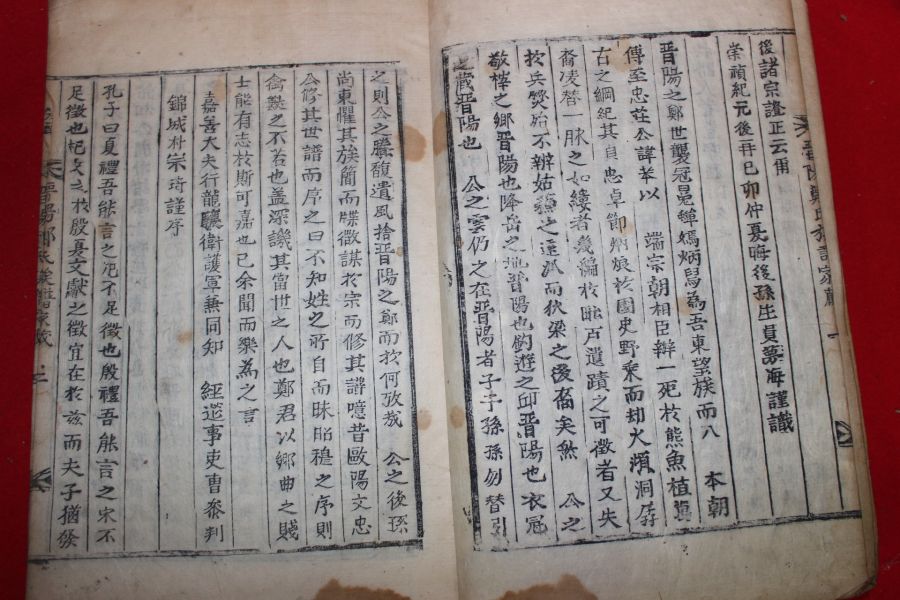 後諸宗證正云甭
崇禎紀元後再己卯仲夏晦後孫生員票海謹識
晋陽之鄭世襲冠冕蟬嫣炳舃為吾東望族而入 本朝
傳至忠莊公諱苯以 端宗朝相臣辦一死於熊魚植
古之綱紀其貞忠卓節炳烺於國史野乘而却火澒洞孱
裔凌替一脉之如縷者幾編於毗戶遺蹟之可徵者又失
於兵燹殆不辦姑蘓之遥派而狄梁之後裔矣然 公之
敬梓之鄉晋陽也降岳之地晋陽也釣遊之印晋陽也衣冠
之蔵晋陽也 公之雲仍之在晋陽者子子孫孫勿替引
之則公之賸馥遺風捨晋陽之鄭而於何攷哉 公之後孫
尚東懼其族簡而牒微謀於宗而修其譜噫昔歐陽文忠
公修其世譜而序之曰不知姓之所自而昧昭穆之序則
禽獸之不若也盖深譏其當世之人也鄭君以鄉曲之賤
士能有志於斯可嘉也已余聞而樂為之言
嘉善大夫行龍驤衛護軍兼同知 經筵事吏曹叅判
錦城朴宗琦謹序
孔子曰夏禮吾能言之杞不足徵也殷禮吾能言之宋不
足徵也杞之於殷具文獻之徵宜在於玆而夫子猶發